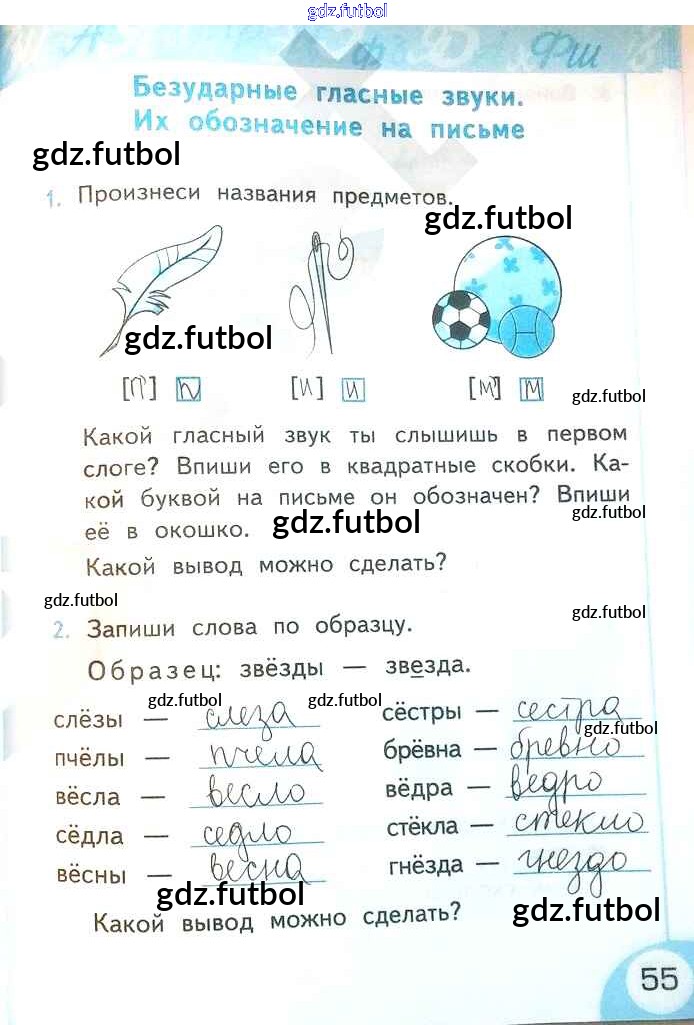 gdz.futbol
Фш
Безударные гласные звуки.
Их обозначение на письме
gdz.futbol
1. Произнеси названия предметов.
gdz.futbol
gdz.futbol
[п'] п [и] и [м'] м
gdz.futbol
Какой гласный звук ты слышишь в первом
слоге? Впиши его в квадратные скобки. Ка-
кой буквой на письме он обозначен? Впиши
её в окошко.
gdz.futbol
gdz.futbol
Какой вывод можно сделать?
gdz.futbol
gdz.futbol
2. Запиши слова по образцу.
Образец: звёзды — звезда.
gdz.futbol gdz.futbol
слёзы — слеза сёстры — сестра
gdz.futbol
пчёлы — пчела брёвна — бревно
вёсла — весло вёдра — ведро
сёдла — седло стёкла — стекло
вёсны — весна гнёзда — гнездо
gdz.futbol gdz.futbol
Какой вывод можно сделать?
55